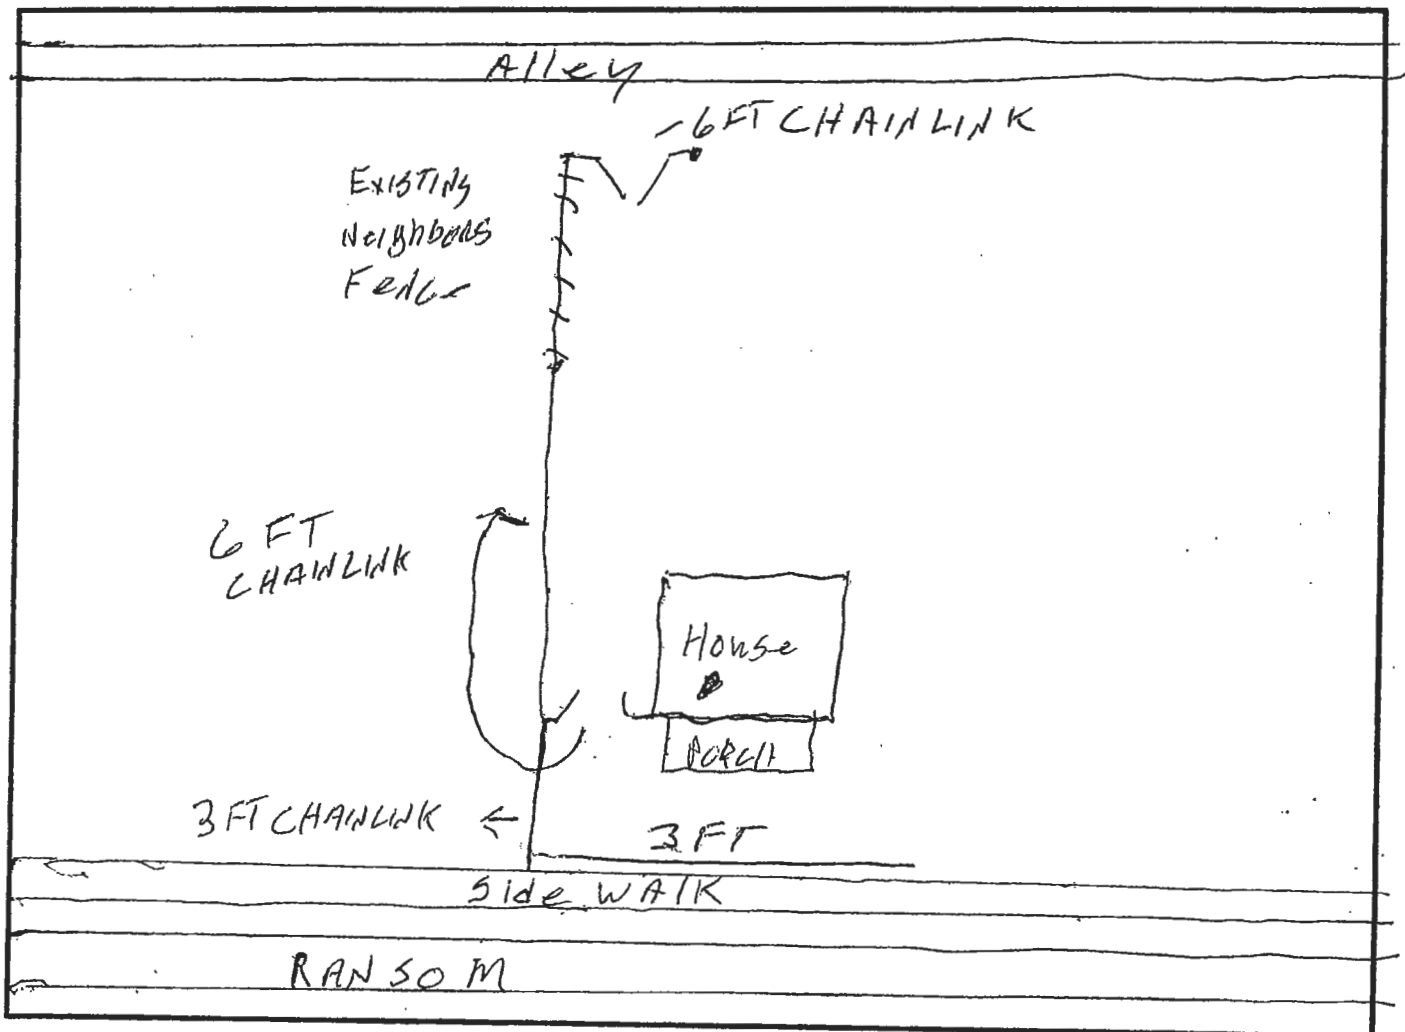 Alley
6 FT CHAINLINK
EXISTING
Neighbors
Fence
6 FT
CHAINLINK
House
PORCH
3 FT CHAINLINK
3 FT
Side WALK
RANSOM